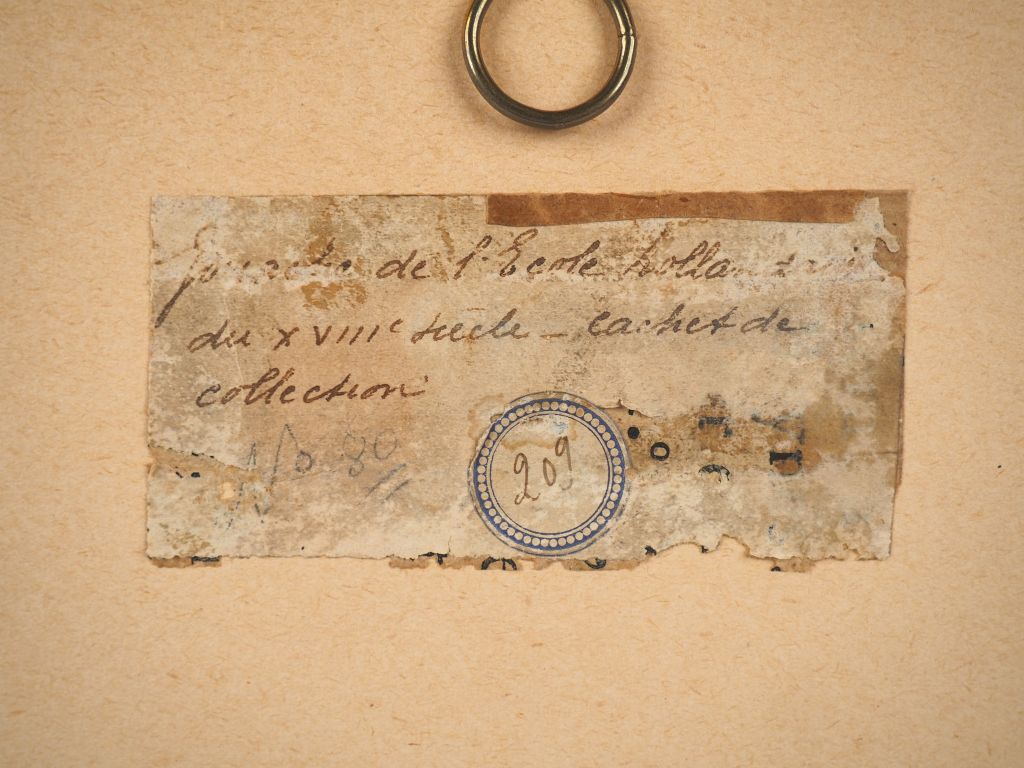 Gouache de l'Ecole hollandaise
du XVIIIe siècle - Cachet de
collection
No 30
209